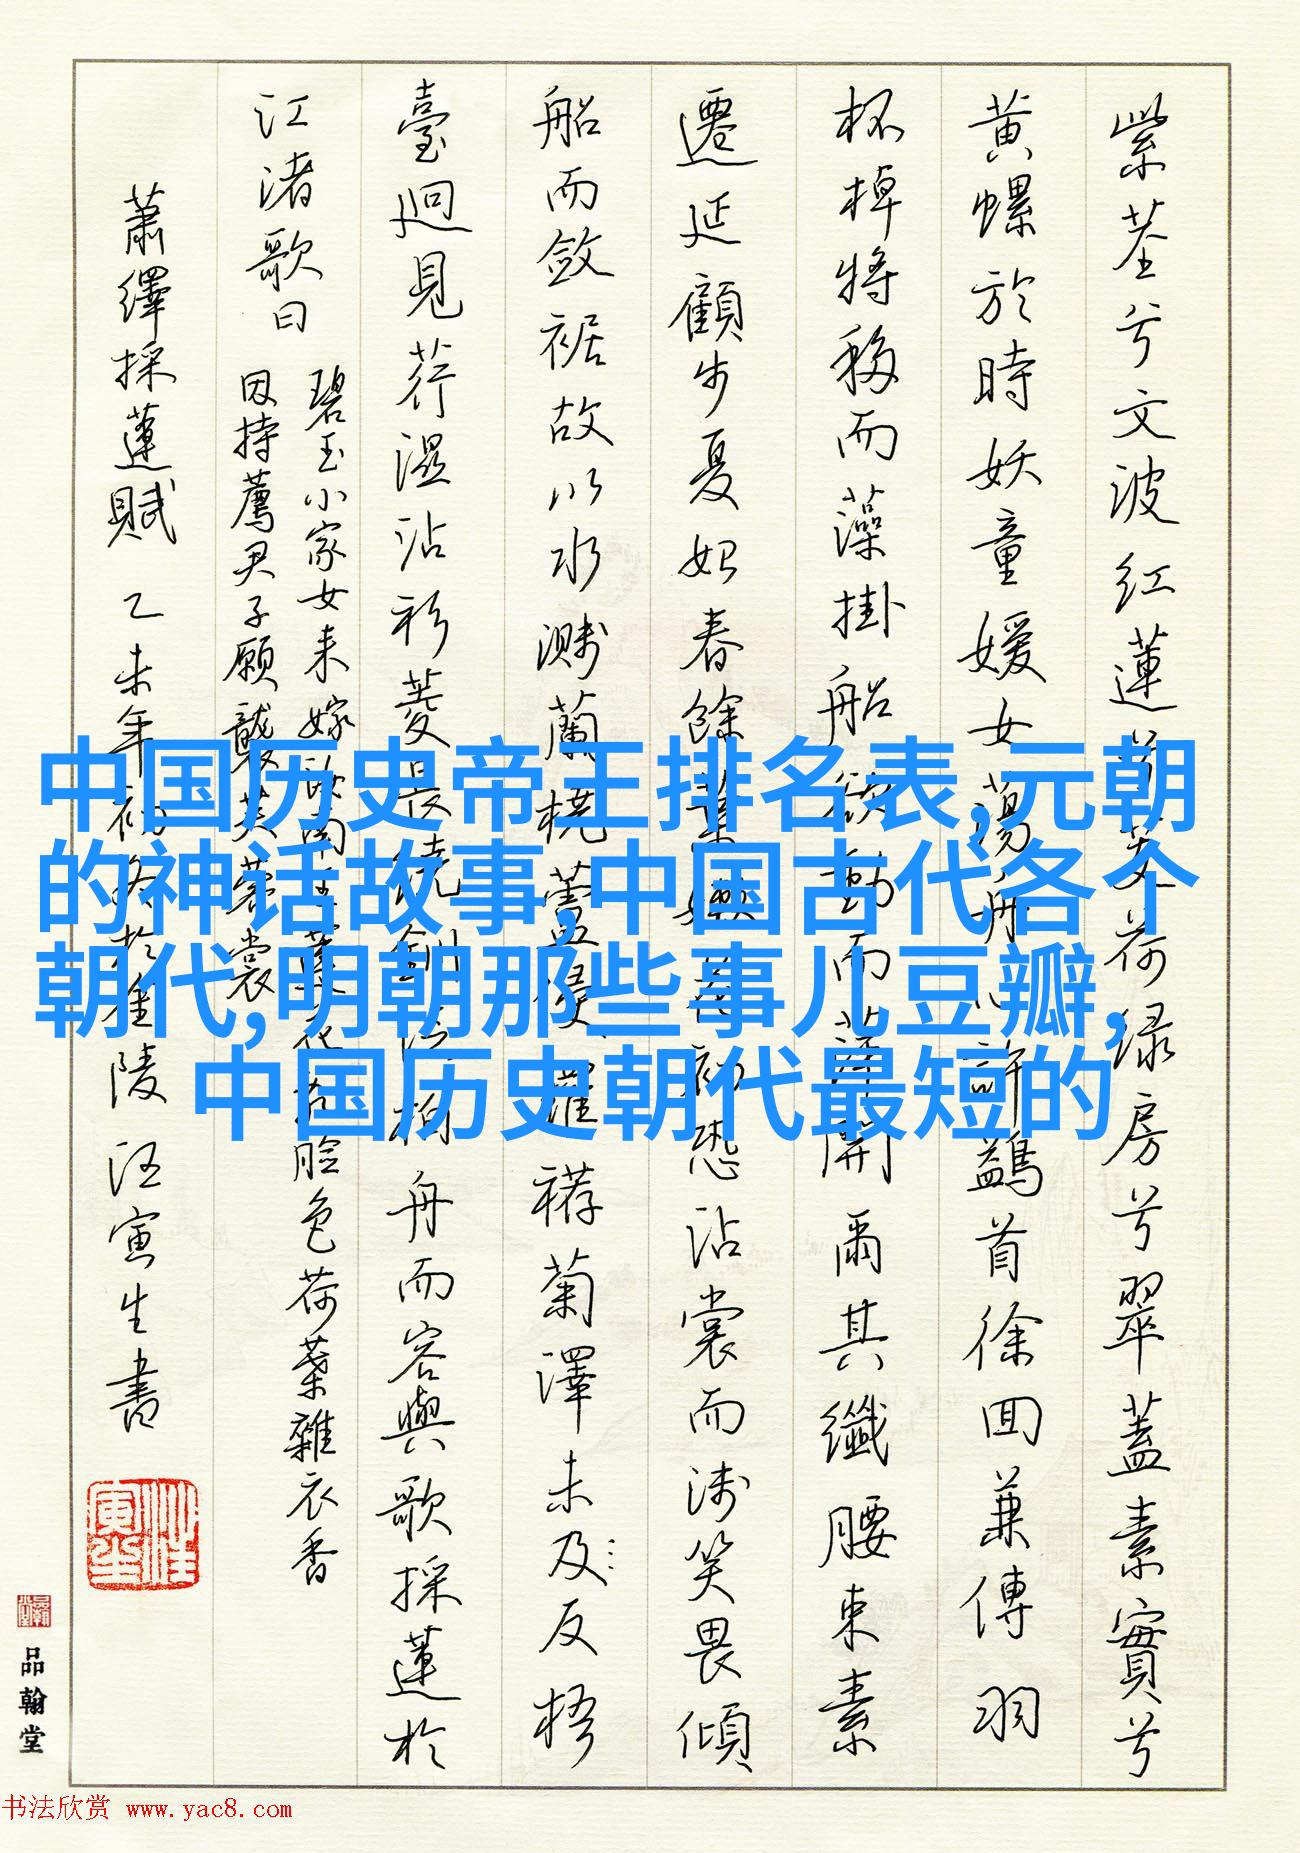 紫茎兮文波红蓮兮芰荷绿房兮翠蓋素實兮
黄螺於時妖童媛女蕩舟心許鷁首徐回兼傳羽
杯棹將移而藻掛船欲動而萍開爾其纖腰束素
遷延顧步夏始春餘葉嫩花初恐沾裳而淺笑畏傾
船而斂裾故以水濺蘭橈蘆侵羅菊澤未及反梧
臺迥見荇濕沾衫菱長繞釧泛柏舟而容與歌採蓮於
江渚歌曰
碧玉小家女来嫁汝南王蓮花亂臉色荷葉雜衣香
因持薦君子願襲芙蓉裳
蕭繹採蓮賦 乙未年初冬於金陵 汪寅生書
中国历史帝王排名表,元朝
的神话故事,中国古代各个
朝代,明朝那些事儿豆瓣,
中国历史朝代最短的
品翰堂
书法欣赏 www.yac8.com